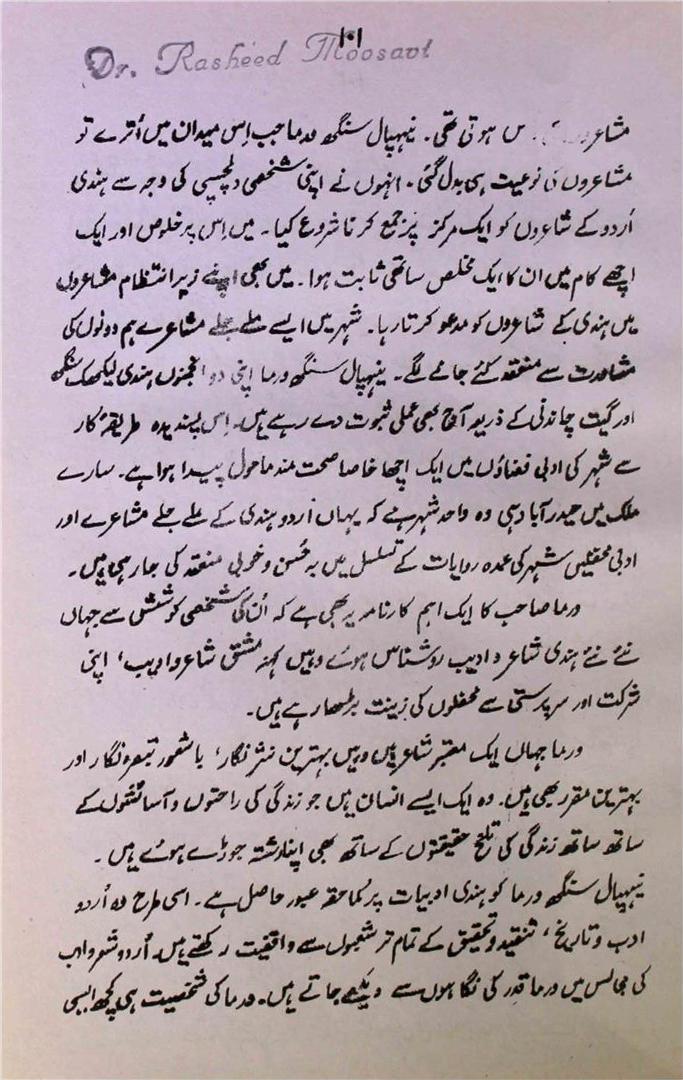 ۱۰۱
Dr. Rasheed Moosavi
مشاعروں س ہوتی تھی۔ نیہپال سنگھ ورما جب اِس میدان میں اُترے تو
مشاعروں کی نوعیت ہی بدل گئی۔ انہوں نے اپنی شخصی دلچسپی کی وجہ سے ہندی
اُردو کے شاعروں کو ایک مرکز پر جمع کرنا شروع کیا۔ میں اِس پر خلوص اور ایک
اچھے کام میں ان کا ایک مخلص ساتھی ثابت ہوا۔ میں بھی اپنے زیر انتظام مشاعروں
میں ہندی کے شاعروں کو مدعو کرتا رہا۔ شہر میں ایسے ملے جلے مشاعرے ہم دونوں کی
مشاورت سے منعقد کئے جانے لگے۔ نیہپال سنگھ ورما اپنی دو انجمنوں ہندی لیکھک سنگھ
اور گیت چاندنی کے ذریعہ آج بھی عملی ثبوت دے رہے ہیں۔ اِس پسندیدہ طریقۂ کار
سے شہر کی ادبی فضاؤں میں ایک اچھا خاصا صحت مند ماحول پیدا ہوا ہے۔ سارے
ملک میں حیدرآباد ہی وہ واحد شہر ہے کہ یہاں اُردو ہندی کے ملے جلے مشاعرے اور
ادبی محفلیں شہر کی عمدہ روایات کے تسلسل میں بہ حُسن و خوبی منعقد کی جارہی ہیں۔
ورما صاحب کا ایک اہم کارنامہ یہ بھی ہے کہ اُن کی شخصی کوشش سے جہاں
نئے نئے ہندی شاعر و ادیب روشناس ہوئے وہیں کہنہ مشق شاعر و ادیب، اپنی
شرکت اور سرپرستی سے محفلوں کی زینت بڑھا رہے ہیں۔
ورما جہاں ایک معتبر شاعر ہیں وہیں بہترین نثر نگار، باشعور تبصرہ نگار اور
بہترین مقرر بھی ہیں۔ وہ ایک ایسے انسان ہیں جو زندگی کی راحتوں و آسائشوں کے
ساتھ ساتھ زندگی کی تلخ حقیقتوں کے ساتھ بھی اپنا رشتہ جوڑے ہوئے ہیں۔
نیہپال سنگھ ورما کو ہندی ادبیات پر کماحقہ عبور حاصل ہے۔ اسی طرح وہ اُردو
ادب و تاریخ، تنقید و تحقیق کے تمام تر شعبوں سے واقفیت رکھتے ہیں۔ اُردو شعر و ادب
کی مجالس میں ورما قدر کی نگاہوں سے دیکھے جاتے ہیں۔ ورما کی شخصیت ہی کچھ ایسی